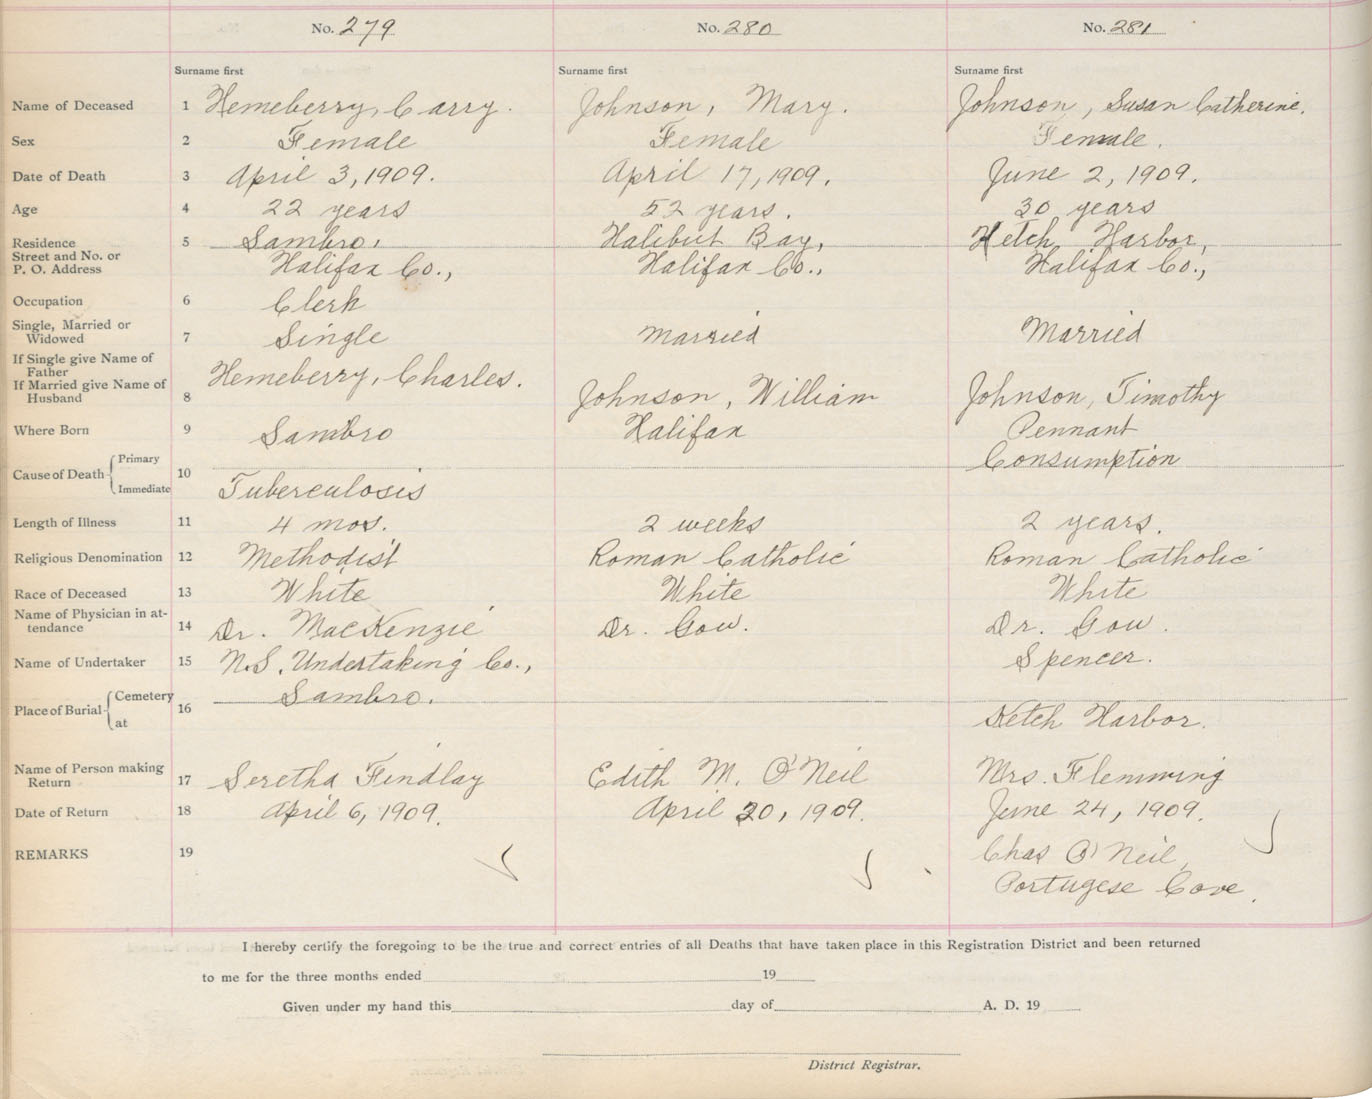 No. 279 No. 280 No. 281
Surname first Surname first Surname first
Name of Deceased 1 Hemeberry, Carry. Johnson, Mary. Johnson, Susan Catherine.
Sex 2 Female Female Female.
Date of Death 3 April 3, 1909. April 17, 1909. June 2, 1909.
Age 4 22 years 52 years. 30 years
Residence 5 Sambro, Halibut Bay, Ketch Harbor,
Street and No. or
P. O. Address Halifax Co., Halifax Co., Halifax Co.,
Occupation 6 Clerk
Single, Married or
Widowed 7 Single Married Married
If Single give Name of
Father Hemeberry, Charles.
If Married give Name of
Husband 8 Johnson, William Johnson, Timothy
Where Born 9 Sambro Halifax Pennant
Cause of Death Primary 10 Consumption
Immediate Tuberculosis
Length of Illness 11 4 mos. 2 weeks 2 years.
Religious Denomination 12 Methodist Roman Catholic Roman Catholic
Race of Deceased 13 White White White
Name of Physician in at-
tendance 14 Dr. MacKenzie Dr. Gow. Dr. Gow.
Name of Undertaker 15 N.S. Undertaking Co., Spencer.
Place of Burial Cemetery 16 Sambro.
at Ketch Harbor.
Name of Person making
Return 17 Seretha Findlay Edith M. O'Neil Mrs. Flemming
Date of Return 18 April 6, 1909. April 20, 1909. June 24, 1909.
REMARKS 19 Chas O'Neil,
Portugese Cove.
I hereby certify the foregoing to be the true and correct entries of all Deaths that have taken place in this Registration District and been returned
to me for the three months ended 19
Given under my hand this day of A. D. 19
District Registrar.